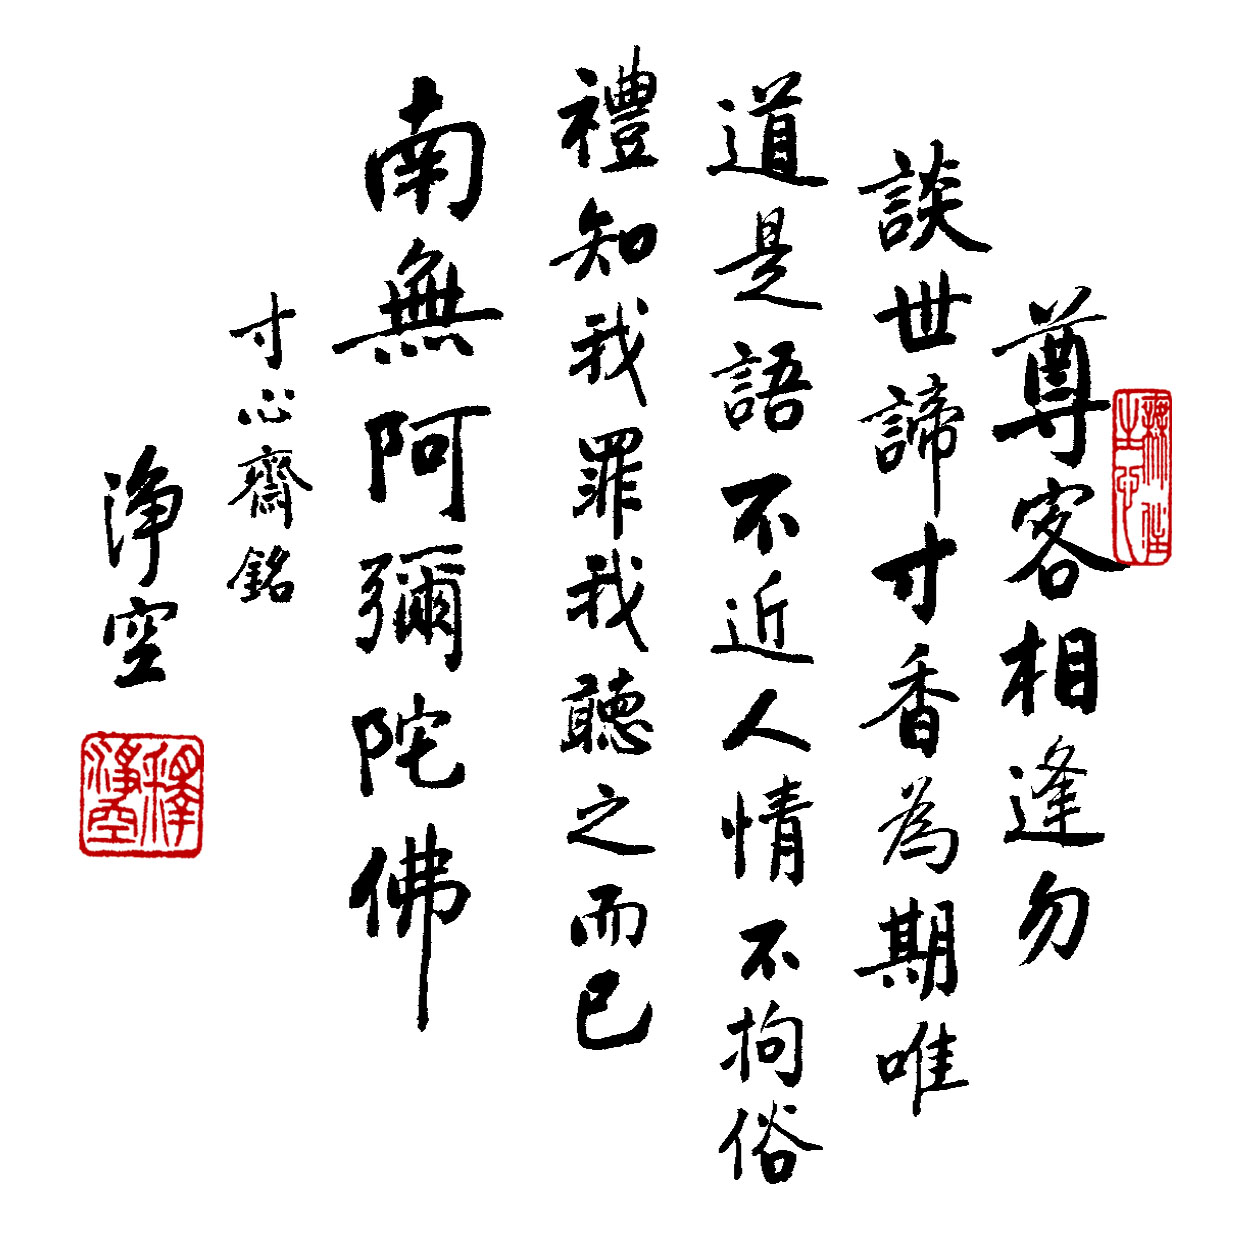 尊客相逢勿
談世諦寸香為期唯
道是語不近人情不拘俗
禮知我罪我聽之而已
南無阿彌陀佛
寸心齋銘
淨空
釋淨空